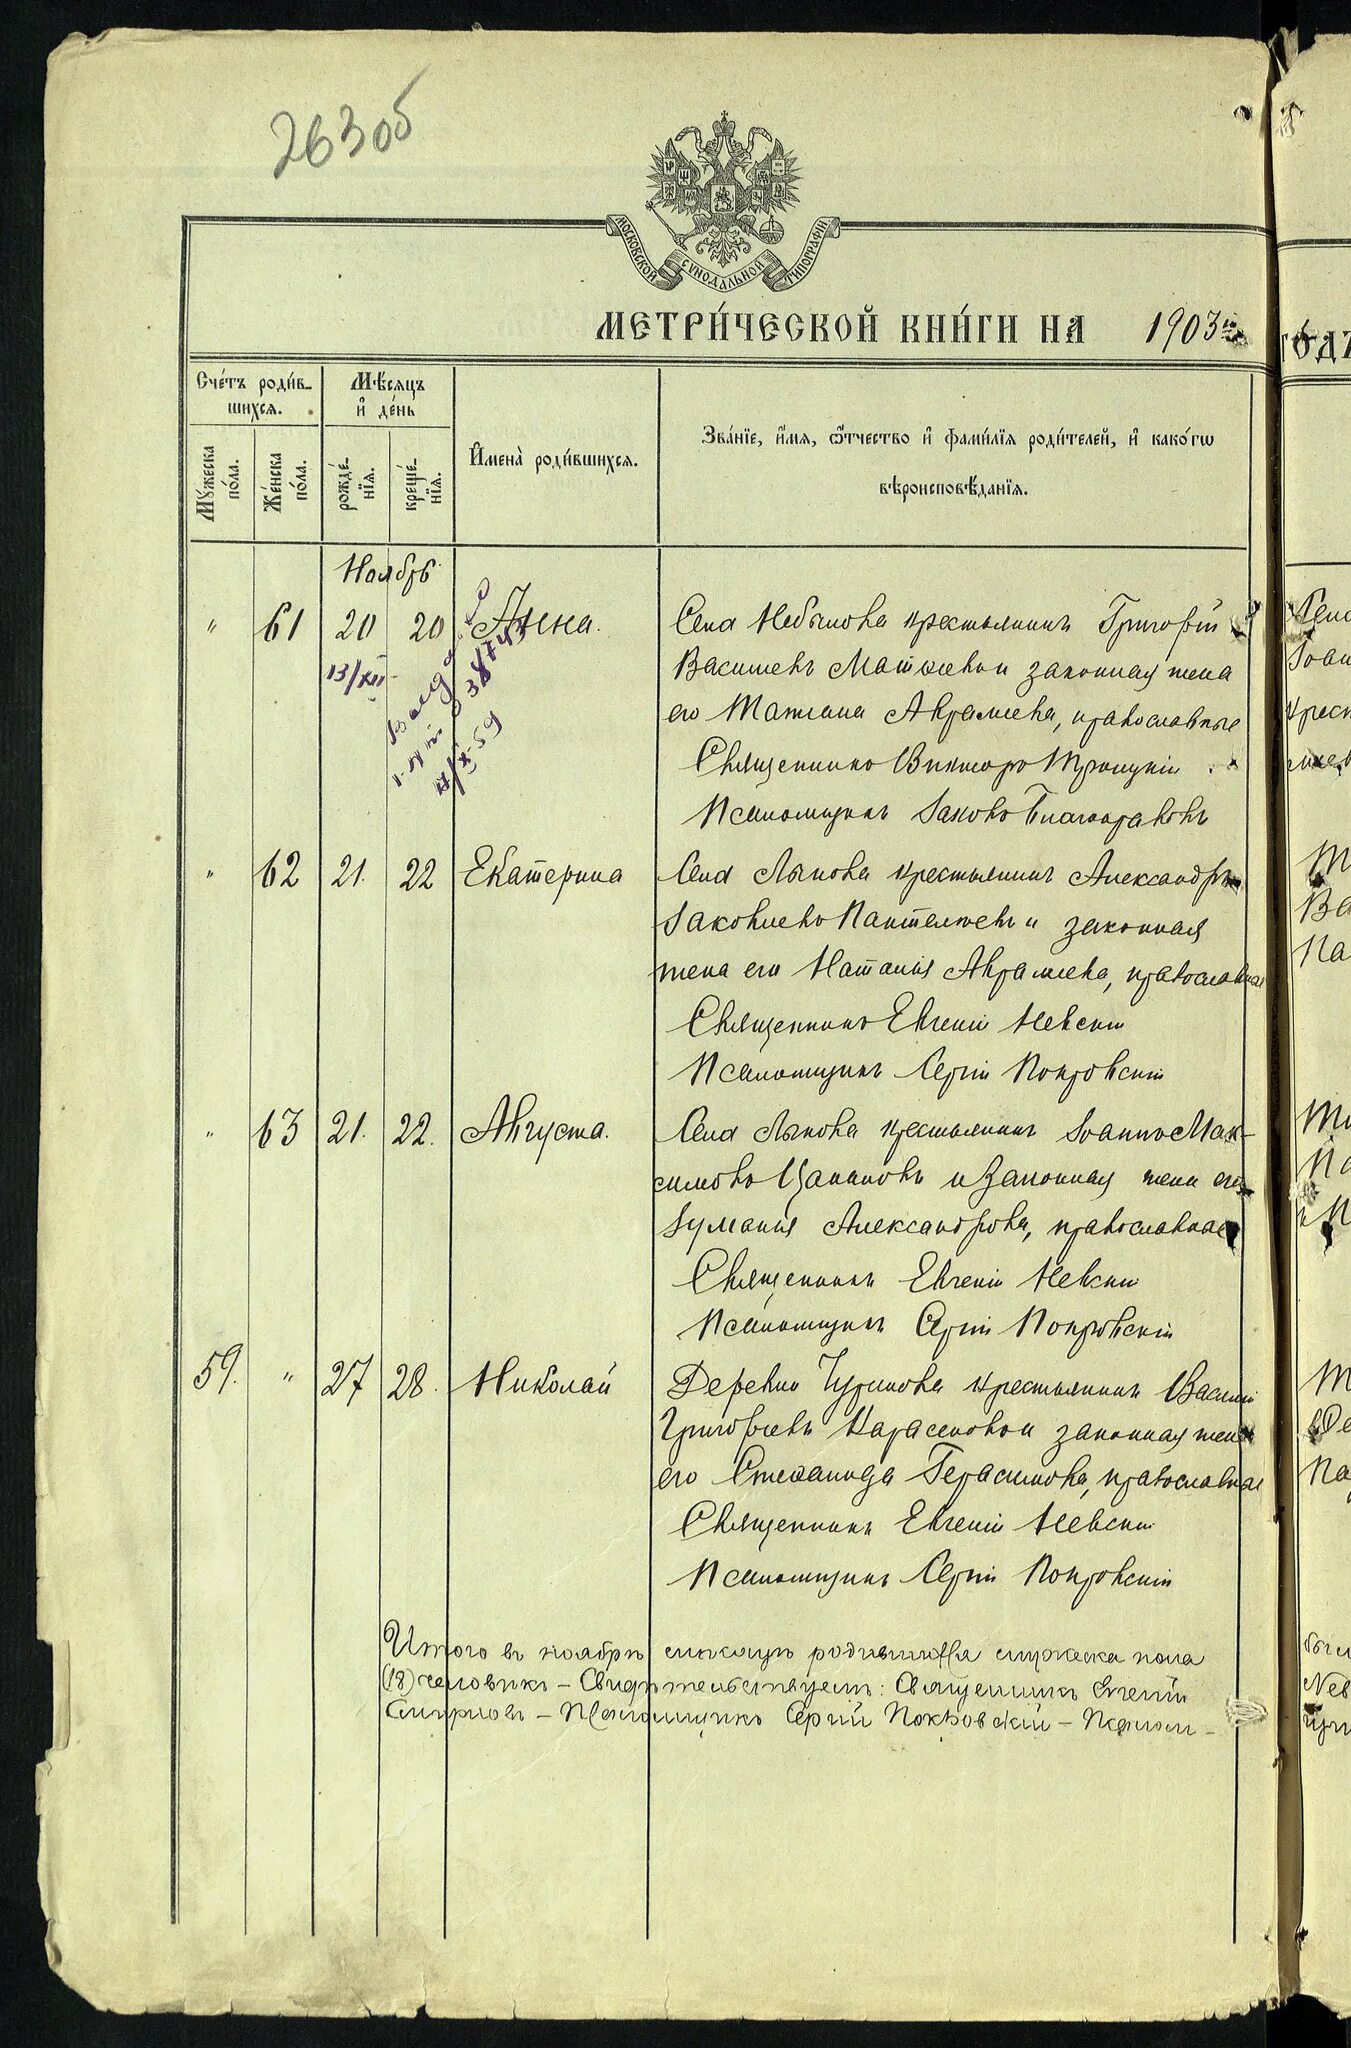 263об
МОСКОВСКОЙ СѴНОДАЛЬНОЙ ТИПОГРАФІИ
МЕТРИ́ЧЕСКОЙ КНИ́ГИ НА 1903й
ГО́ДЪ
Сче́тъ роди́в-
шихся.
Мѣ́сяцъ
и҆ де́нь
Мꙋ́жеска по́ла.
Же́нска по́ла.
рожде́-
нїя.
креще́-
нїя.
И҆мена̀ роди́вшихся.
Зва́нїе, и҆́мя, ѻ҆́тчество и҆ фами́лїя роди́телей, и҆ како́гѡ
вѣроисповѣ́данїя.
Ноябрь
" 61 20 20 Анна. Села Небылова крестьянинъ Григорій
13/XII
Васильевъ Матвѣевъ и законная жена
его Татіана Авраміева, православные
Священникъ Викторъ Троицкій
Псаломщикъ Іаковъ Благонравовъ
" 62 21. 22 Екатерина Села Лыкова крестьянинъ Александръ
Іаковлевъ Пантелѣевъ и законная
жена его Наталія Авраміева, православные
Священникъ Евгеній Невскій
Псаломщикъ Сергій Покровскій
" 63 21. 22. Августа. Села Лыкова крестьянинъ Іоаннъ Мак-
симовъ Цапановъ и законная жена его
Іуліанія Александрова, православные
Священникъ Евгеній Невскій
Псаломщикъ Сергій Покровскій
59. " 27 28. Николай Деревни Чурилова крестьянинъ Василій
Григорьевъ Карасевъ и законная жена
его Стефанида Герасимова, православные
Священникъ Евгеній Невскій
Псаломщикъ Сергій Покровскій
Итого въ ноябрѣ мѣсяцѣ родившихся мужеска пола
(18) человѣкъ – Свидѣтельствуемъ: Священникъ Евгеній
Смирновъ – Псаломщикъ Сергій Покровскій – Псалом-